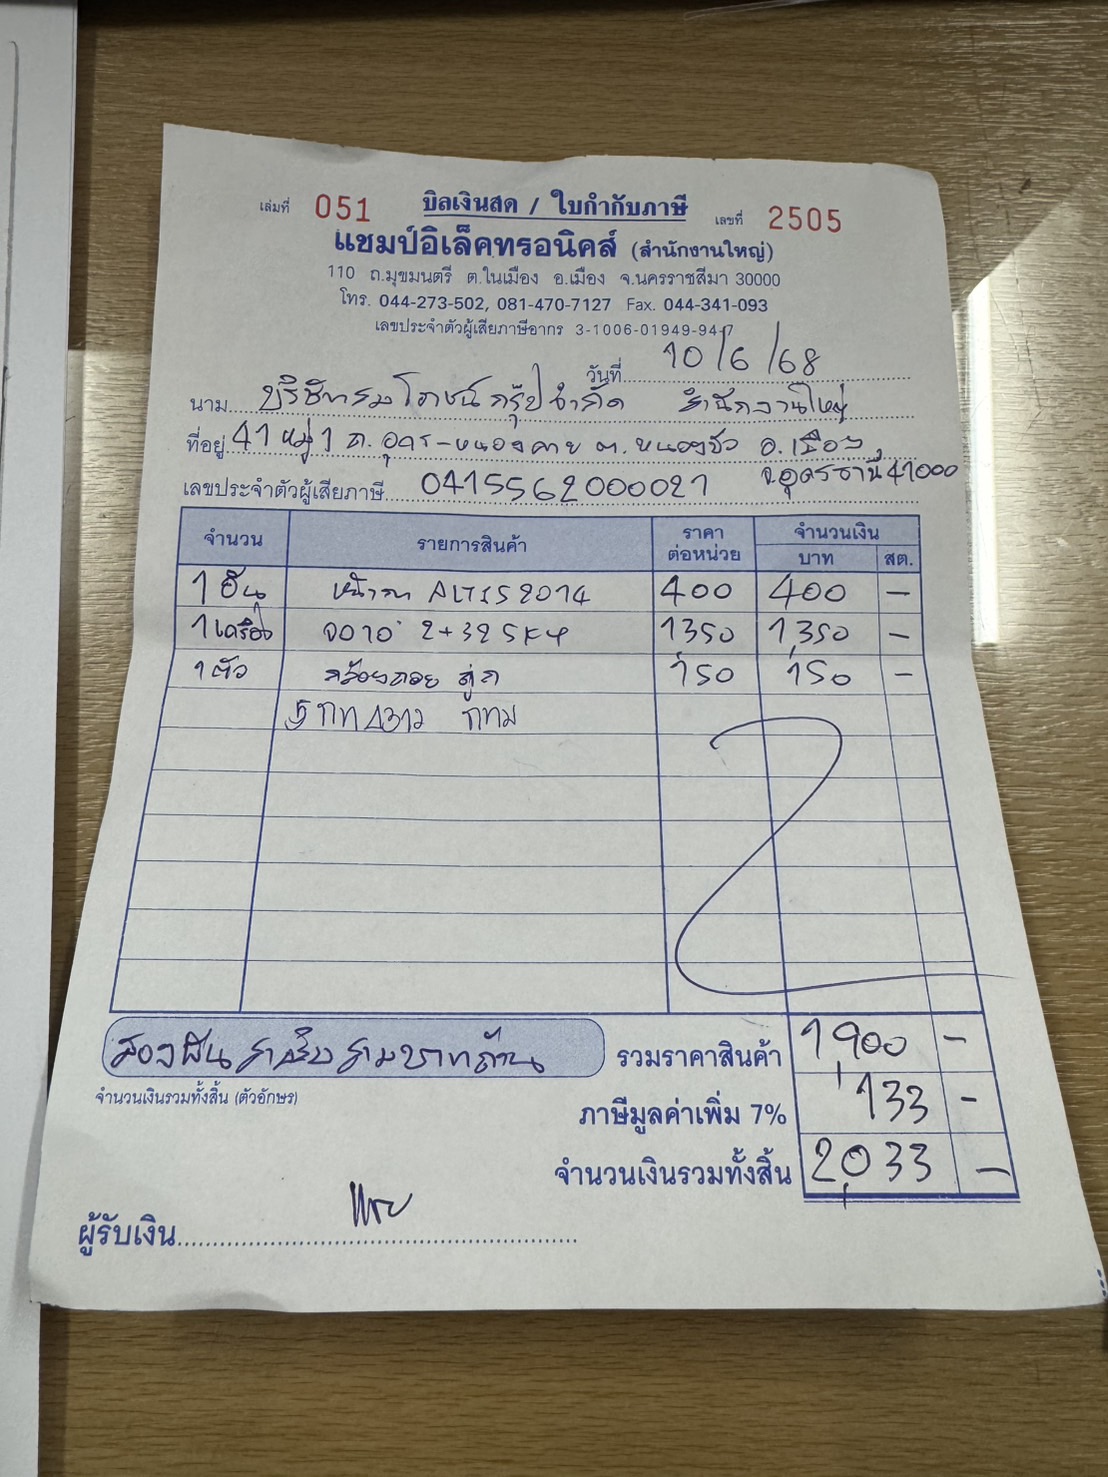 เล่มที่ 051 บิลเงินสด / ใบกำกับภาษี เลขที่ 2505
แชมป์อิเล็คทรอนิคส์ (สำนักงานใหญ่)
110 ถ.มุขมนตรี ต.ในเมือง อ.เมือง จ.นครราชสีมา 30000
โทร. 044-273-502, 081-470-7127 Fax. 044-341-093
เลขประจำตัวผู้เสียภาษีอากร 3-1006-01949-94-7
วันที่ 10/6/68
นาม บริษัท กรุ๊ป จำกัด สำนักงานใหญ่
ที่อยู่ 41 หมู่ 1 ถ.อุดร-หนองคาย ต.หนองบัว อ.เมือง
จ.อุดรธานี 41000
เลขประจำตัวผู้เสียภาษี 0415562000021
จำนวน รายการสินค้า ราคาต่อหน่วย จำนวนเงิน
บาท สต.
1 อัน หน้ากาก ALTIS 2014 400 400 -
1 เครื่อง จอ 10" 2+32 1350 1,350 -
1 ตัว กล้องถอย 150 150 -
กทม
สองพันสามสิบสามบาทถ้วน รวมราคาสินค้า 1,900 -
จำนวนเงินรวมทั้งสิ้น (ตัวอักษร)
ภาษีมูลค่าเพิ่ม 7% 133 -
จำนวนเงินรวมทั้งสิ้น 2,033 -
ผู้รับเงิน